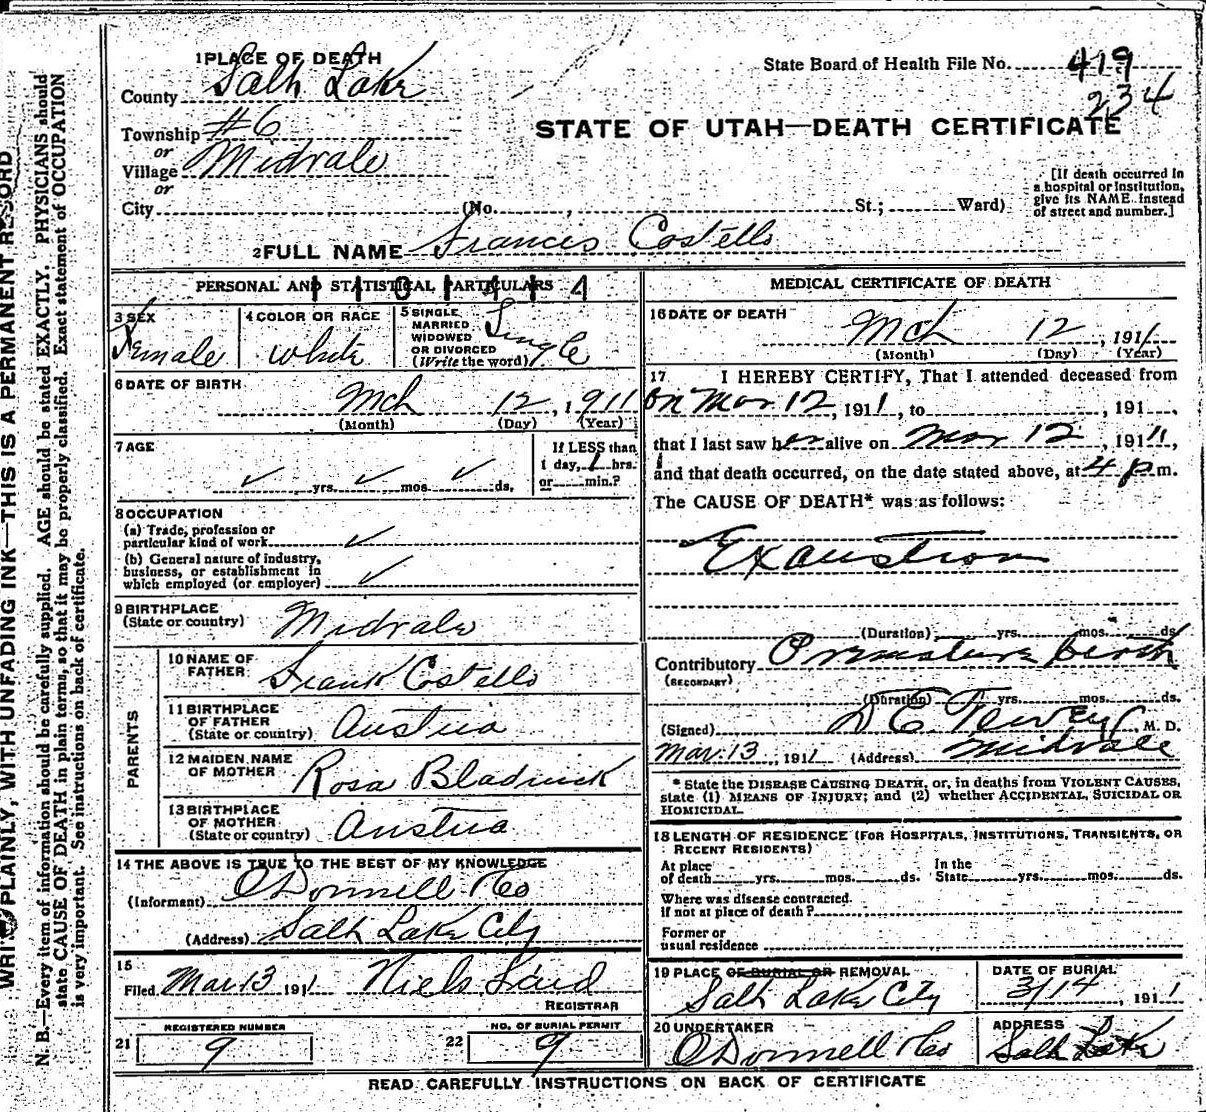 WRITE PLAINLY, WITH UNFADING INK—THIS IS A PERMANENT RECORD
N. B.—Every item of information should be carefully supplied. AGE should be stated EXACTLY. PHYSICIANS should
state CAUSE OF DEATH in plain terms, so that it may be properly classified. Exact statement of OCCUPATION
is very important. See instructions on back of certificate.
1 PLACE OF DEATH
State Board of Health File No. 419
234
County Salt Lake
Township #6
or
Village Midvale
or
City (No. , St.; Ward)
STATE OF UTAH—DEATH CERTIFICATE
[If death occurred in
a hospital or institution,
give its NAME instead
of street and number.]
2 FULL NAME Francis Costello
PERSONAL AND STATISTICAL PARTICULARS
3 SEX Female
4 COLOR OR RACE White
5 SINGLE, MARRIED WIDOWED OR DIVORCED (Write the word) Single
6 DATE OF BIRTH
Mch 12, 1911
(Month) (Day) (Year)
7 AGE
✓ yrs. ✓ mos. ✓ ds.
If LESS than
1 day, 1 hrs.
or min.?
8 OCCUPATION
(a) Trade, profession or
particular kind of work ✓
(b) General nature of industry,
business, or establishment in
which employed (or employer) ✓
9 BIRTHPLACE
(State or country) Midvale
PARENTS
10 NAME OF
FATHER Frank Costello
11 BIRTHPLACE
OF FATHER
(State or country) Austria
12 MAIDEN NAME
OF MOTHER Rosa
13 BIRTHPLACE
OF MOTHER
(State or country) Austria
14 THE ABOVE IS TRUE TO THE BEST OF MY KNOWLEDGE
(Informant) O'Donnell & Co
(Address) Salt Lake City
15
Filed Mar 13 1911 Niels Lind
REGISTRAR
21 REGISTERED NUMBER 9
22 NO. OF BURIAL PERMIT 9
MEDICAL CERTIFICATE OF DEATH
16 DATE OF DEATH
Mch 12, 1911
(Month) (Day) (Year)
17 I HEREBY CERTIFY, That I attended deceased from
on Mar 12, 1911, to , 191 ,
that I last saw her alive on Mar 12, 1911,
and that death occurred, on the date stated above, at 4 p m.
The CAUSE OF DEATH* was as follows:
Exaustion
(Duration) yrs. mos. ds.
Contributory Premature birth
(SECONDARY)
(Duration) yrs. mos. ds.
(Signed) D C M. D.
Mar. 13, 1911 (Address) Midvale
* State the DISEASE CAUSING DEATH, or, in deaths from VIOLENT CAUSES,
state (1) MEANS OF INJURY; and (2) whether ACCIDENTAL, SUICIDAL OR
HOMICIDAL.
18 LENGTH OF RESIDENCE (FOR HOSPITALS, INSTITUTIONS, TRANSIENTS, OR
RECENT RESIDENTS)
At place
of death yrs. mos. ds. In the
State yrs. mos. ds.
Where was disease contracted.
if not at place of death?
Former or
usual residence
19 PLACE OF BURIAL OR REMOVAL
Salt Lake City
DATE OF BURIAL
3/14, 1911
20 UNDERTAKER
O'Donnell & Co
ADDRESS
Salt Lake
READ CAREFULLY INSTRUCTIONS ON BACK OF CERTIFICATE